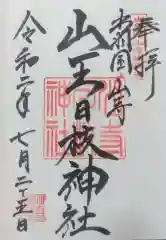 奉拝
出羽国山寺
山王日枝神社
令和二年七月二十五日